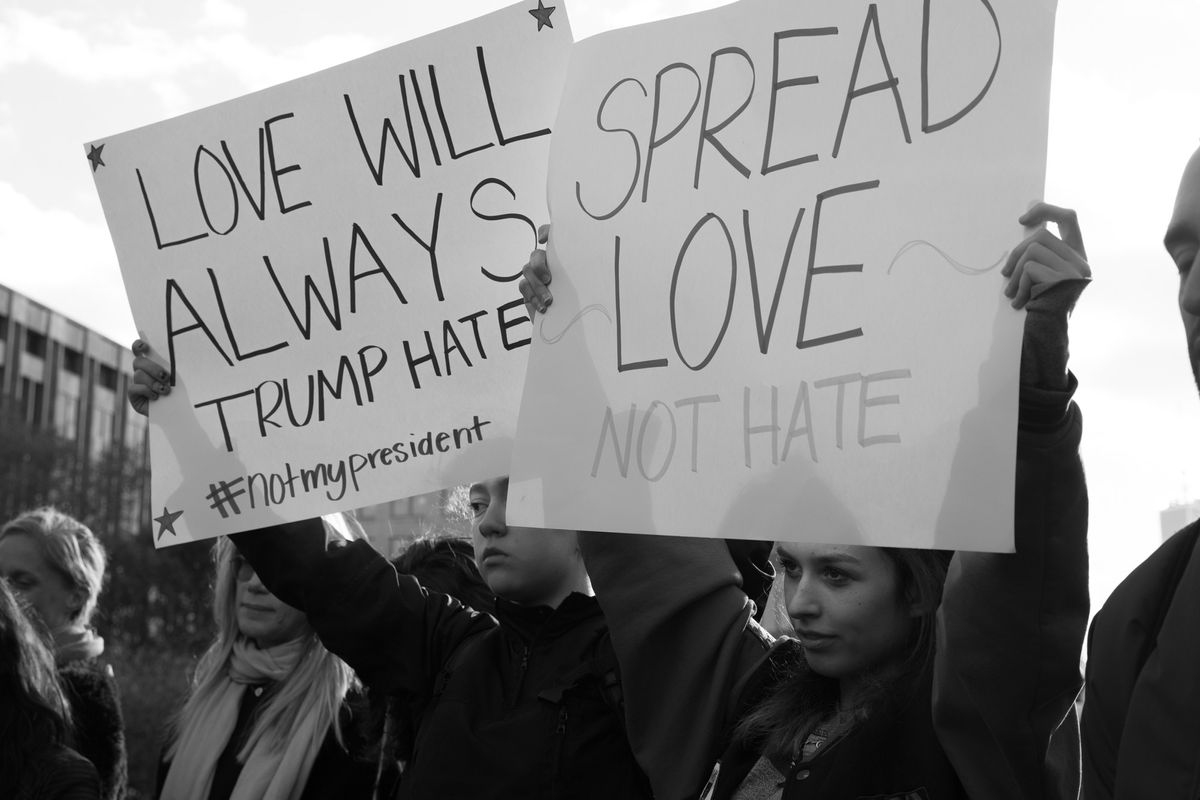 LOVE WILL
ALWAYS
TRUMP HATE
#notmypresident
SPREAD
LOVE
NOT HATE